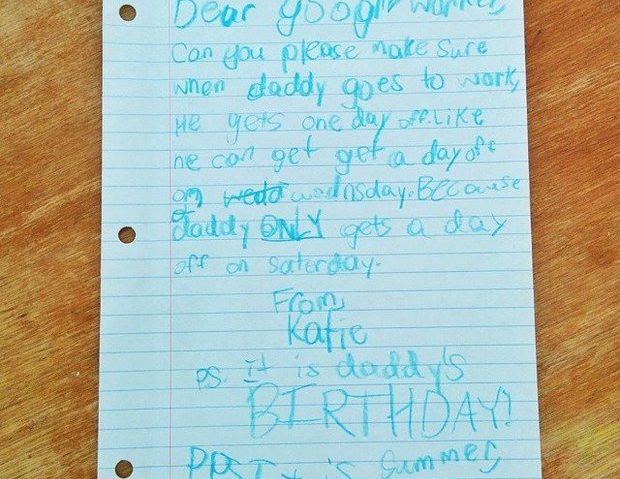 Dear google worker,
Can you please make sure
when daddy goes to work,
He gets one day off. Like
he can get get a day off
on weda wednsday. Because
daddy ONLY gets a day
off on saterday.
From,
Katie
P.S. It is daddy's
BIRTHDAY!
PPS It is summer,